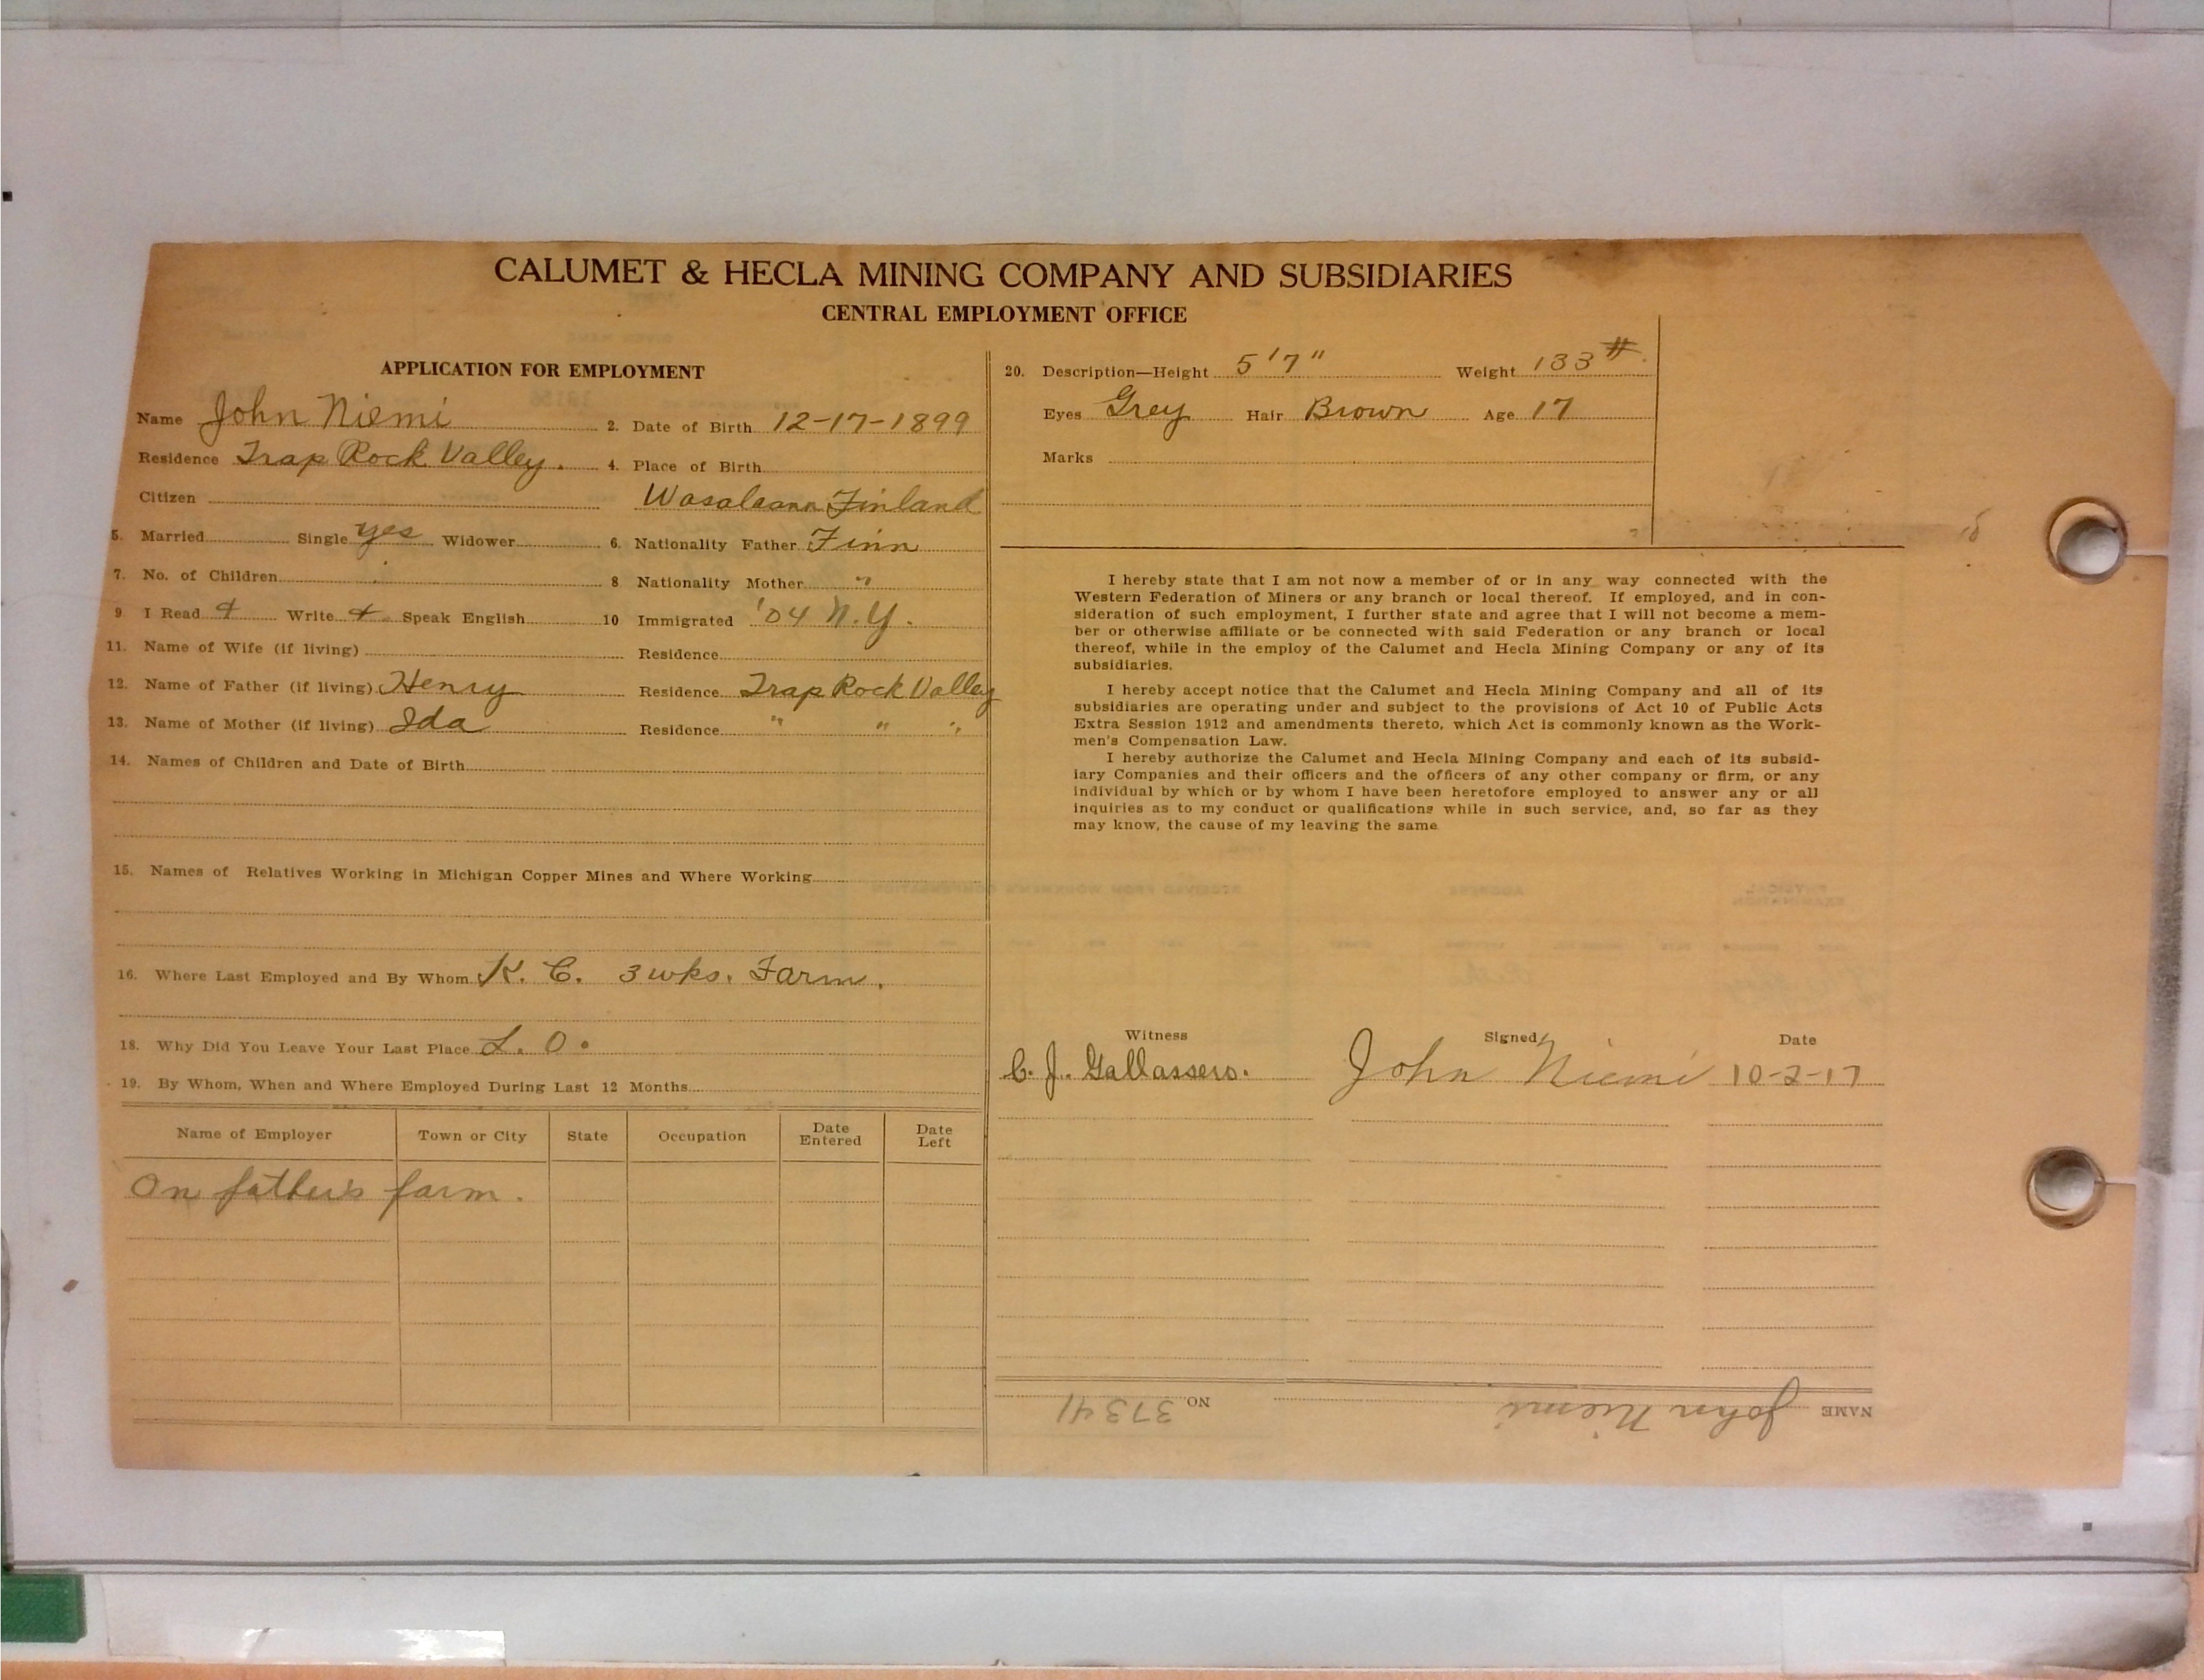 CALUMET & HECLA MINING COMPANY AND SUBSIDIARIES
CENTRAL EMPLOYMENT OFFICE
APPLICATION FOR EMPLOYMENT
Name John Niemi 2. Date of Birth 12-17-1899
Residence Trap Rock Valley. 4. Place of Birth
Citizen Wasalaann Finland
5. Married Single yes Widower 6. Nationality Father Finn
7. No. of Children 8 Nationality Mother "
9. I Read & Write & Speak English 10 Immigrated '04 N.Y.
11. Name of Wife (if living) Residence
12. Name of Father (if living) Henry Residence Trap Rock Valley
13. Name of Mother (if living) Ida Residence " " "
14. Names of Children and Date of Birth
15. Names of Relatives Working in Michigan Copper Mines and Where Working
16. Where Last Employed and By Whom K. C. 3 wks. Farm.
18. Why Did You Leave Your Last Place L. O.
19. By Whom, When and Where Employed During Last 12 Months
Name of Employer Town or City State Occupation Date Entered Date Left
On father's farm.
20. Description—Height 5'7" Weight 133 #
Eyes Grey Hair Brown Age 17
Marks
I hereby state that I am not now a member of or in any way connected with the
Western Federation of Miners or any branch or local thereof. If employed, and in con-
sideration of such employment, I further state and agree that I will not become a mem-
ber or otherwise affiliate or be connected with said Federation or any branch or local
thereof, while in the employ of the Calumet and Hecla Mining Company or any of its
subsidiaries.
I hereby accept notice that the Calumet and Hecla Mining Company and all of its
subsidiaries are operating under and subject to the provisions of Act 10 of Public Acts
Extra Session 1912 and amendments thereto, which Act is commonly known as the Work-
men's Compensation Law.
I hereby authorize the Calumet and Hecla Mining Company and each of its subsid-
iary Companies and their officers and the officers of any other company or firm, or any
individual by which or by whom I have been heretofore employed to answer any or all
inquiries as to my conduct or qualifications while in such service, and, so far as they
may know, the cause of my leaving the same
Witness Signed Date
C. J. Gallassero. John Niemi 10-2-17
NAME John Niemi NO. 37341